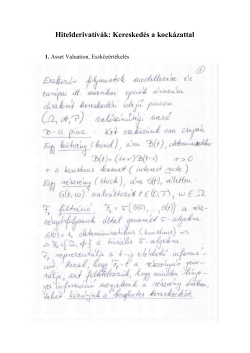 Hitelderivatívák: Kereskedés a kockázattal
1. Asset Valuation, Eszközértékelés
Eszközár folyamatok modellezése és
európai ill. amerikai opciók árazása
diszkrét kereskedési idejű piacon
(Ω, A, P) valószínűségi mező
B–S piac: Két eszközünk van csupán
Egy kötvény (bond), ára B(t), determinisztikus
B(t) = (1+r) B(t-1) r > 0
r a konstans kamat (interest rate)
Egy részvény (stock), ára S(t), véletlen:
S(t, ω) valószínűségi ω ∈ Ω
filtráció = σ(S(0), ..., S(t)) a rész-
vényfolyamatok által generált σ-algebra
S(0) = determinisztikus (konstans) ⇒
⇒ = {Ω, ∅} a triviális σ-algebra
reprezentálja a t-ig elérhető informá-
ciót azzal, hogy a részvény gene-
rálja, azt feltételezzük, hogy minden lénye-
ges információ megjelenik a részvény árában,